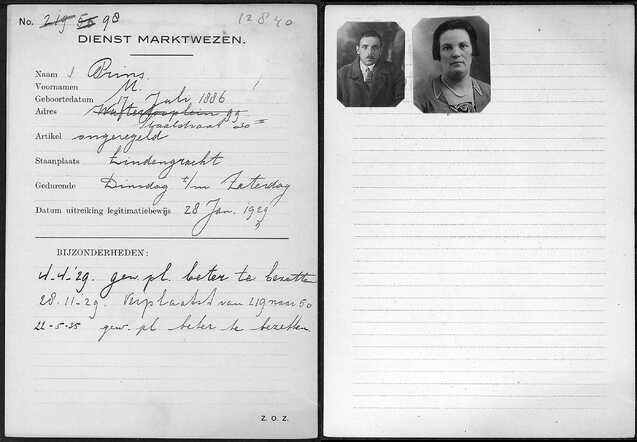 No. 219 56 98 12840
DIENST MARKTWEZEN.
Naam Prins.
Voornamen M.
Geboortedatum 17 Juli 1886
Adres Waterlooplein
Staalstraat
Artikel ongeregeld
Staanplaats Lindengracht
Gedurende Dinsdag t/m Zaterdag
Datum uitreiking legitimatiebewijs 28 Jan. 1929
BIJZONDERHEDEN:
4.4-'29. gew. pl. beter te bezetten
28-11-29. Verplaatst van 219 naar 50
22-5-35 gew. pl. beter te bezetten
Z. O. Z.